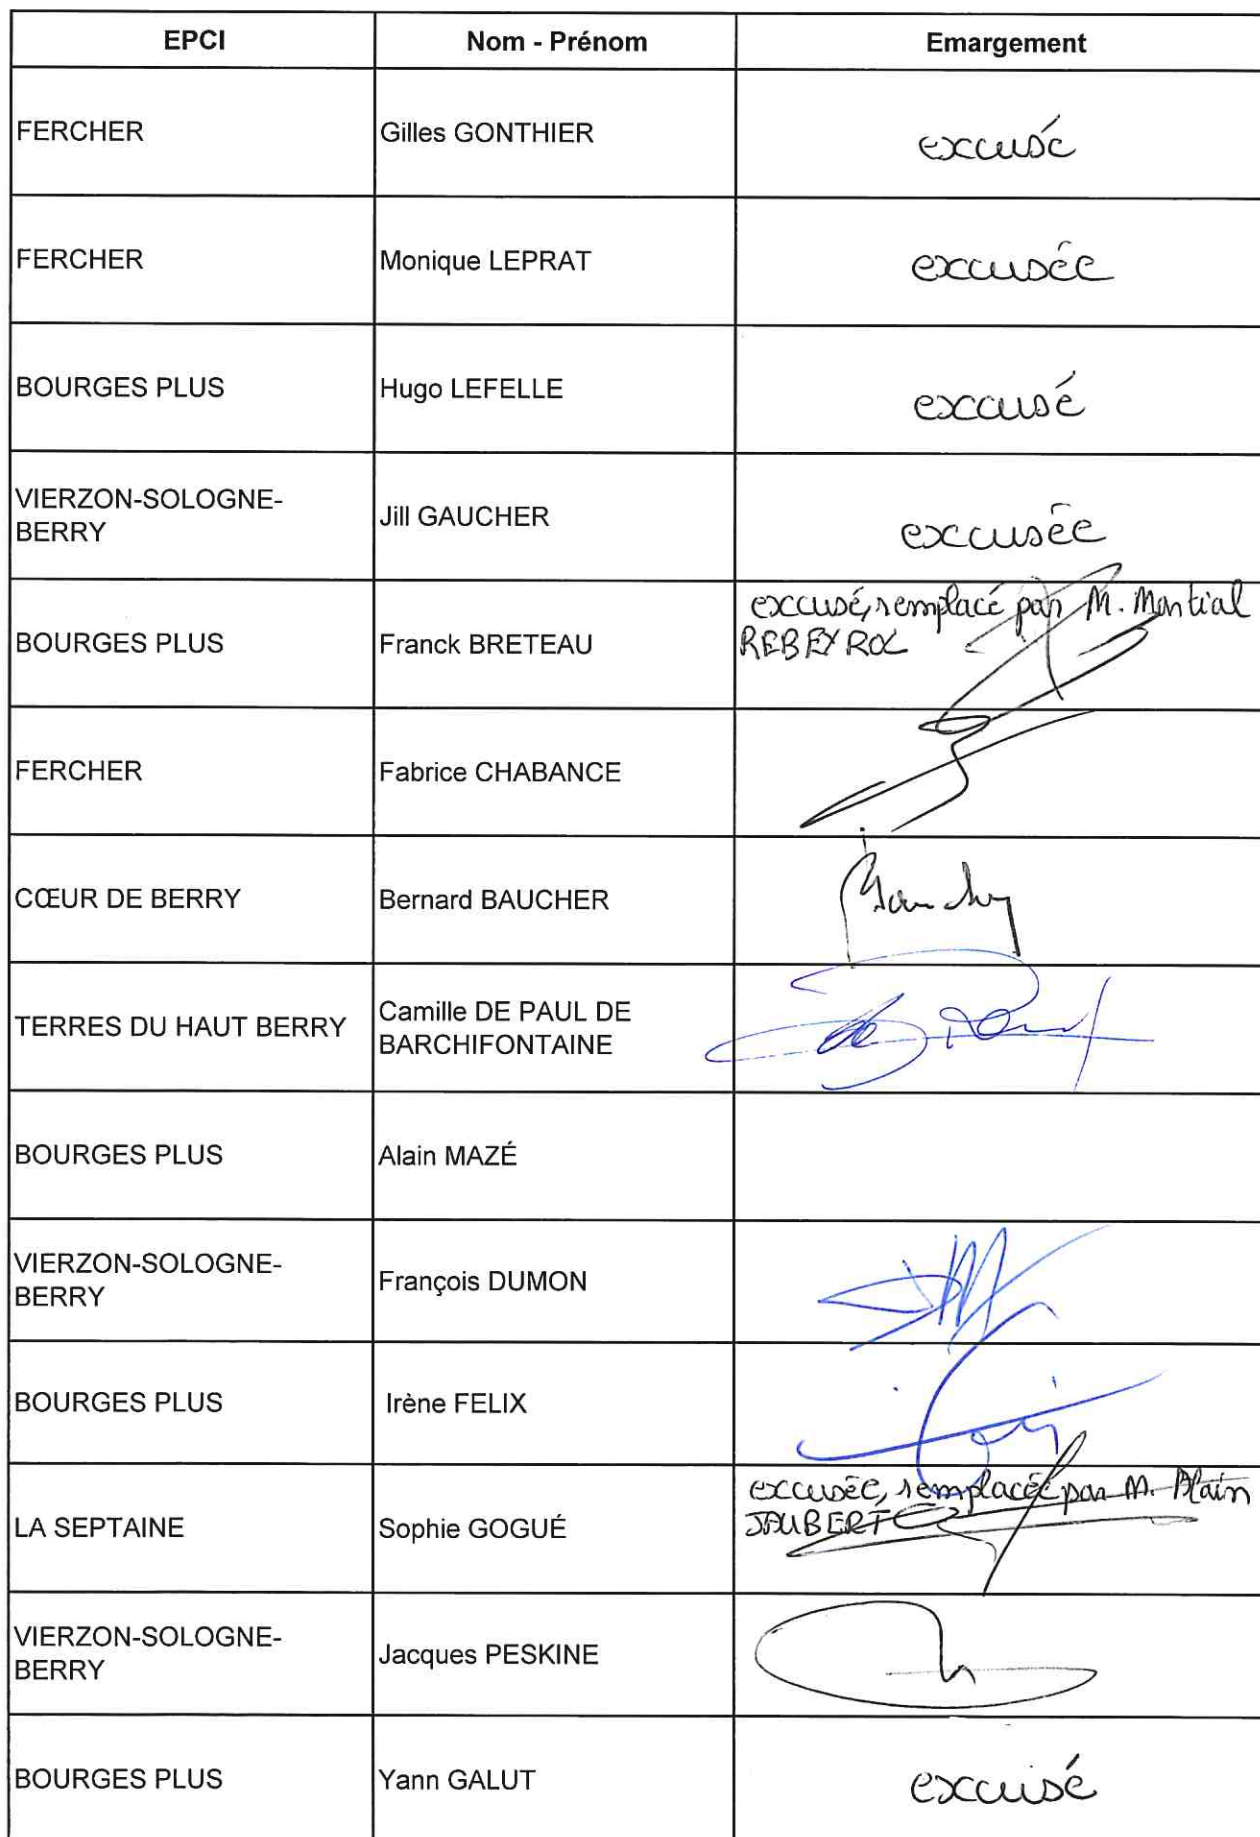 EPCI Nom - Prénom Emargement
FERCHER Gilles GONTHIER excusé
FERCHER Monique LEPRAT excusée
BOURGES PLUS Hugo LEFELLE excusé
VIERZON-SOLOGNE-
BERRY Jill GAUCHER excusée
BOURGES PLUS Franck BRETEAU excusé, remplacé par M. Martial
REBEYROL
FERCHER Fabrice CHABANCE
CŒUR DE BERRY Bernard BAUCHER
TERRES DU HAUT BERRY Camille DE PAUL DE
BARCHIFONTAINE
BOURGES PLUS Alain MAZÉ
VIERZON-SOLOGNE-
BERRY François DUMON
BOURGES PLUS Irène FELIX
LA SEPTAINE Sophie GOGUÉ excusée, remplacée par M. Alain
JAUBERT
VIERZON-SOLOGNE-
BERRY Jacques PESKINE
BOURGES PLUS Yann GALUT excusé